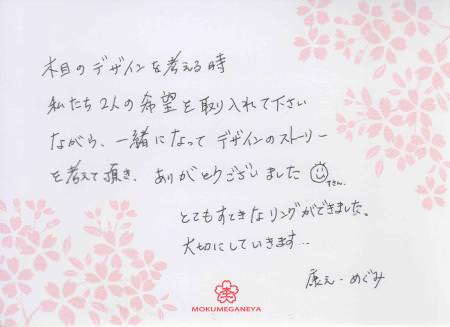 木目のデザインを考える時
私たち2人の希望を取り入れて下さい
ながら、一緒になってデザインのストーリー
を考えて頂き、ありがとうございました
Tさん
とてもすてきなリングができました。
大切にしていきます…
康え・めぐみ
MOKUMEGANEYA